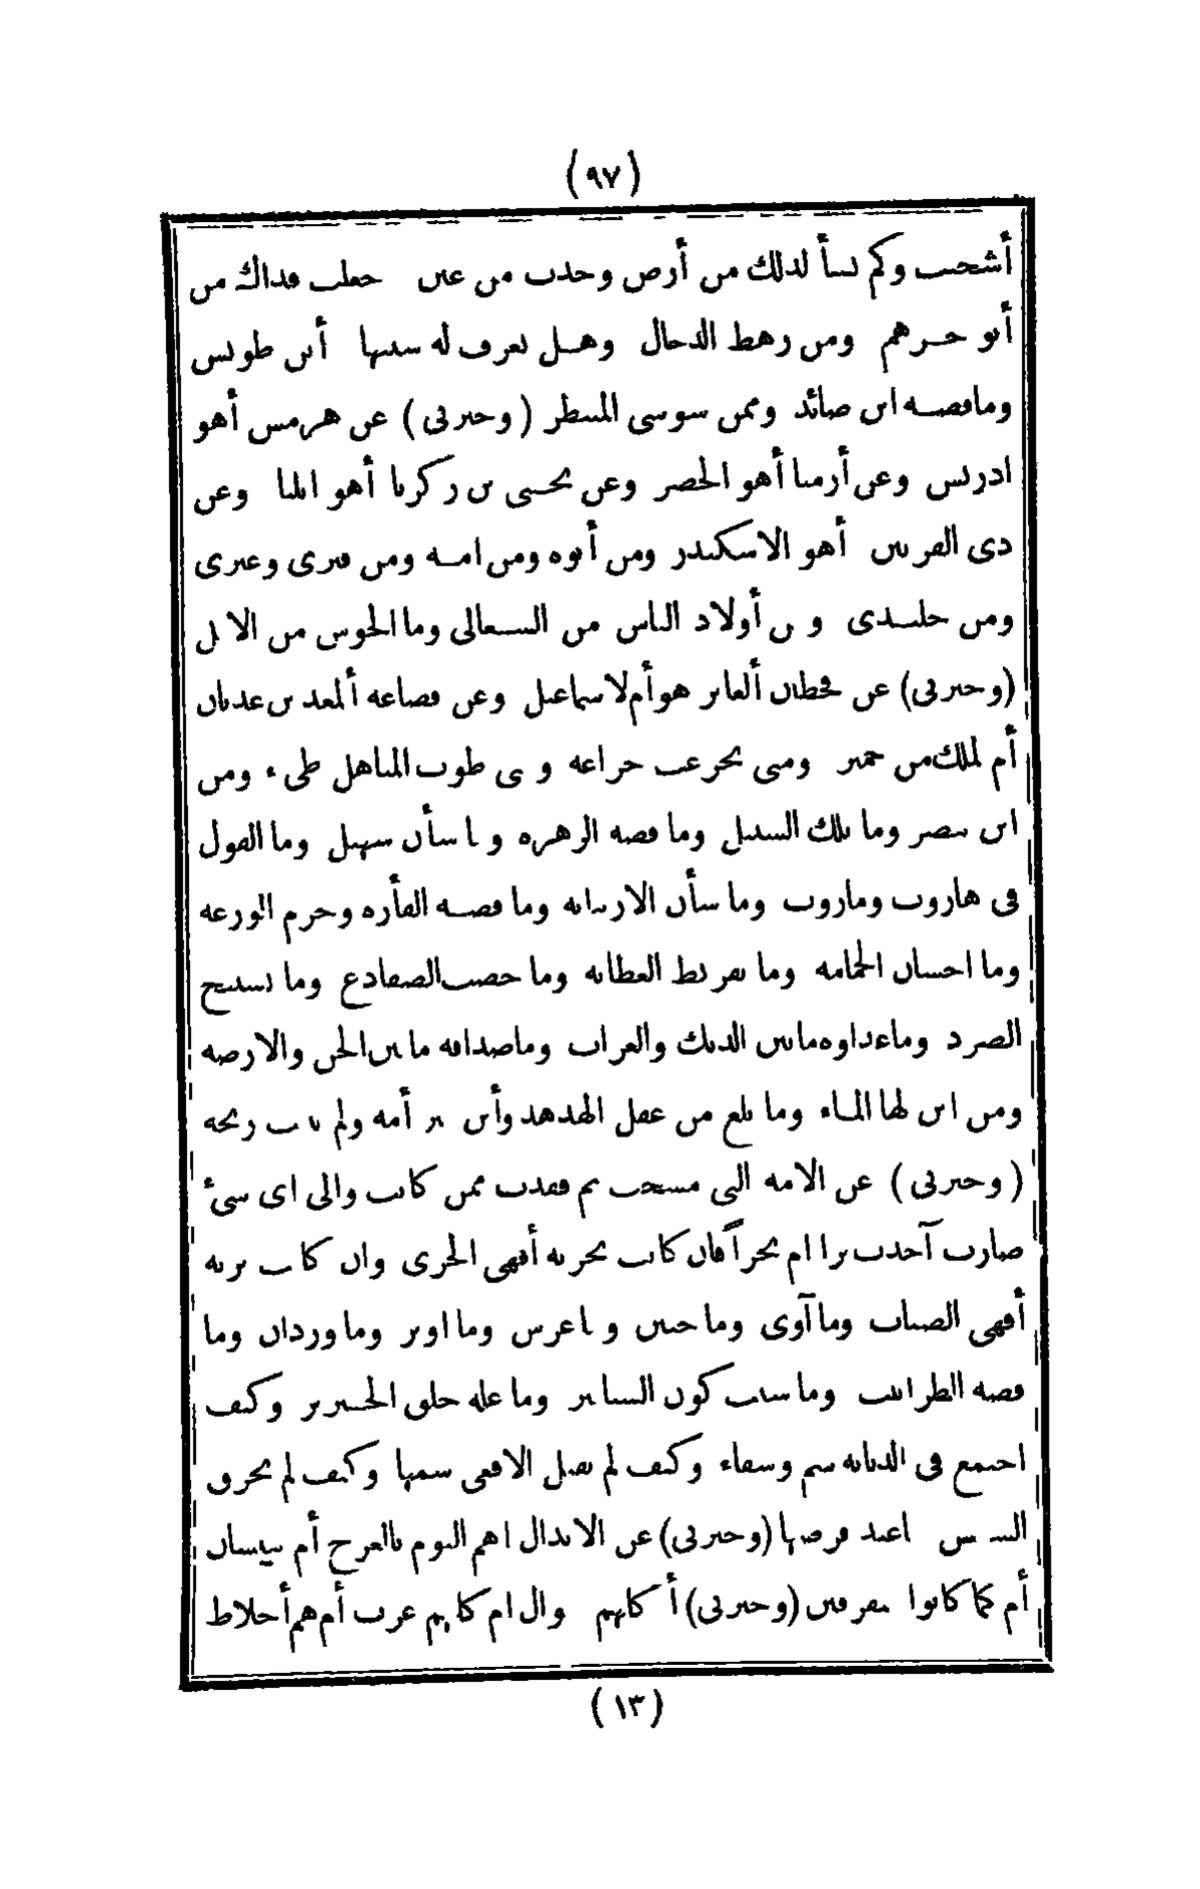 (٩٧)
أشحب وكم لذلك من أرض وحدث من عين حطب فداك من
أبو جرهم ومن رهط الدجال وهل يعرف له سنها أين طويس
وما قصة ابن صائد وممن سوسى المنتظر (وخبرني) عن هرمس أهو
ادريس وعن أرميا أهو الخضر وعن يحيى بن زكريا أهو ايليا وعن
ذى القرنين أهو الاسكندر ومن أبوه ومن امه ومن قيرى وعيرى
ومن جلندى و أولاد الناس من السعالى وما الحوش من الابل
(وخبرني) عن قحطان ألعابر هو أم لاسماعيل وعن قضاعة ألمعد بن عدنان
أم لملك من حمير ومتى تخزعت خزاعة و طوت المناهل طىء ومن
ابن بيض وما تلك السبيل وما قصة الزهرة و شأن سهيل وما القول
فى هاروت وماروت وما شأن الاربيانة وما قصة الفأرة وجرم الوزغة
وما احسان الحمامة وما تفريط العظاية وما حصب الضفادع وما تسبيح
الصرد وما عداوة ما بين الديك والغراب وما صداقة ما بين الجن والارضة
ومن اين لها الماء وما بلغ من عقل الهدهد وأين أمه ولم ريحه
(وخبرني) عن الامة التى مسخت ثم فقدت ممن كانت والى اى شىء
صارت آخذت برا ام بحرا فان كانت بحرية أفهى الجرى وان كانت برية
أفهى الضباب وما آوى وما حبين و عرس وما اوبر وما وردان وما
قصة الطرائيث وما سبب كون السنانير وما علة خلق الخنزير وكيف
اجتمع فى الذبابة سم وشفاء وكيف لم يقتل الافعى سمها وكيف لم يحرق
قرصها (وخبرني) عن الابدال اهم اليوم بالعرج أم ببيسان
أم كما كانوا مفرقين (وخبرني) أ عرب أم هم أخلاط
(١٣)